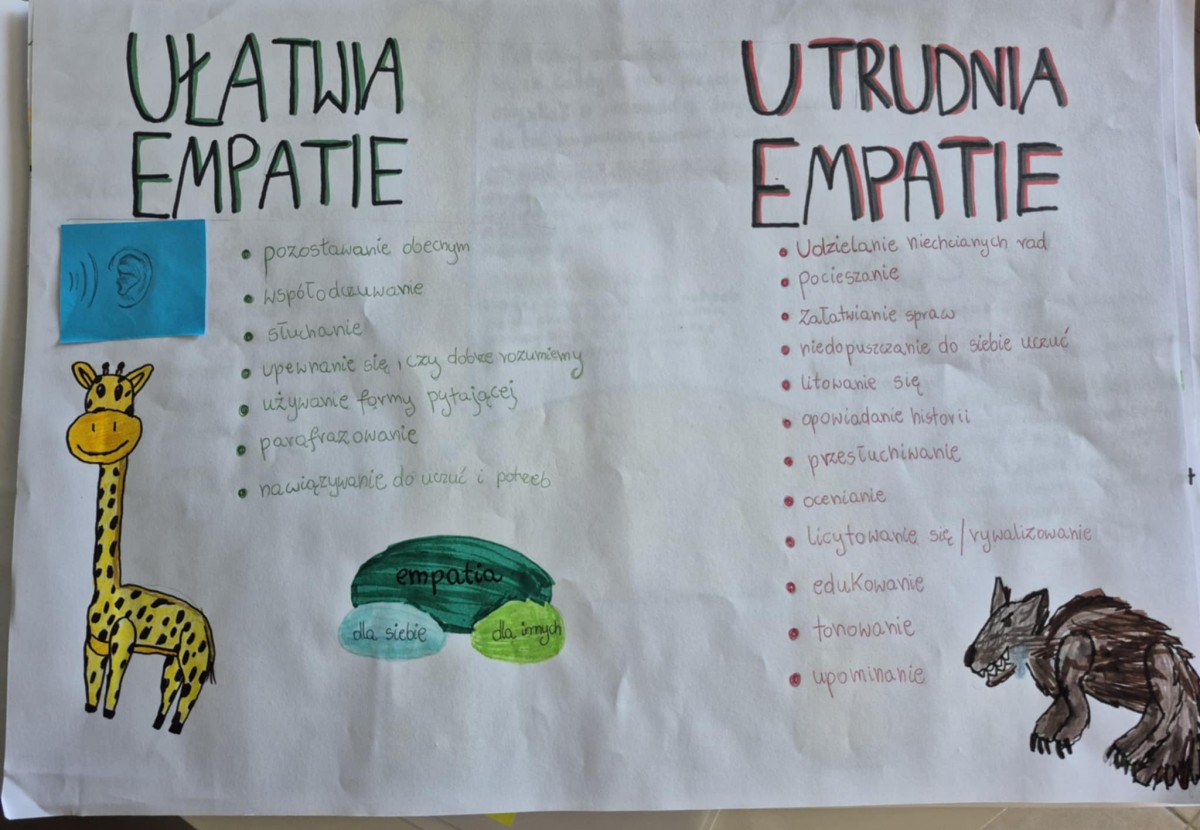 UŁATWIA
EMPATIE
• pozostawanie obecnym
• współodczuwanie
• słuchanie
• upewnanie się, czy dobrze rozumiemy
• używanie formy pytającej
• parafrazowanie
• nawiązywanie do uczuć i potrzeb
empatia
dla siebie
dla innych
UTRUDNIA
EMPATIE
• Udzielanie niechcianych rad
• pocieszanie
• załatwianie spraw
• niedopuszczanie do siebie uczuć
• litowanie się
• opowiadanie historii
• przesłuchiwanie
• ocenianie
• licytowanie się/rywalizowanie
• edukowanie
• tonowanie
• upominanie